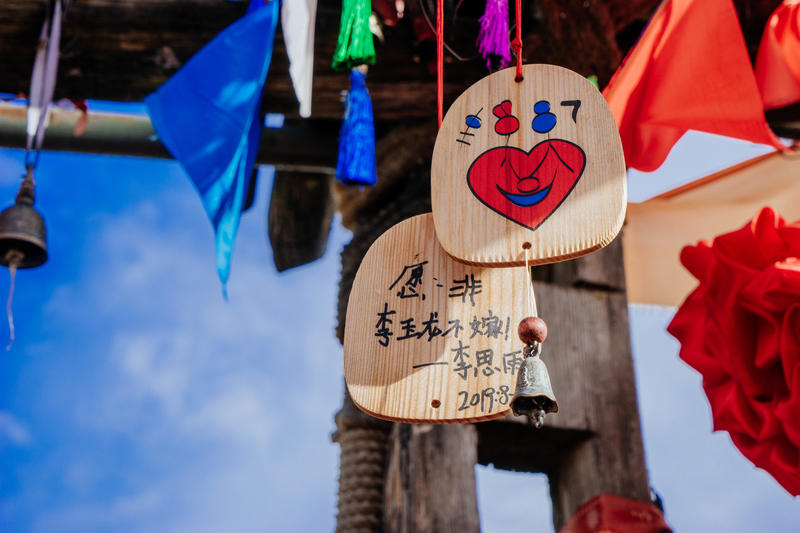 愿：非
李玉龙不嫁!
—李思雨
2019.8